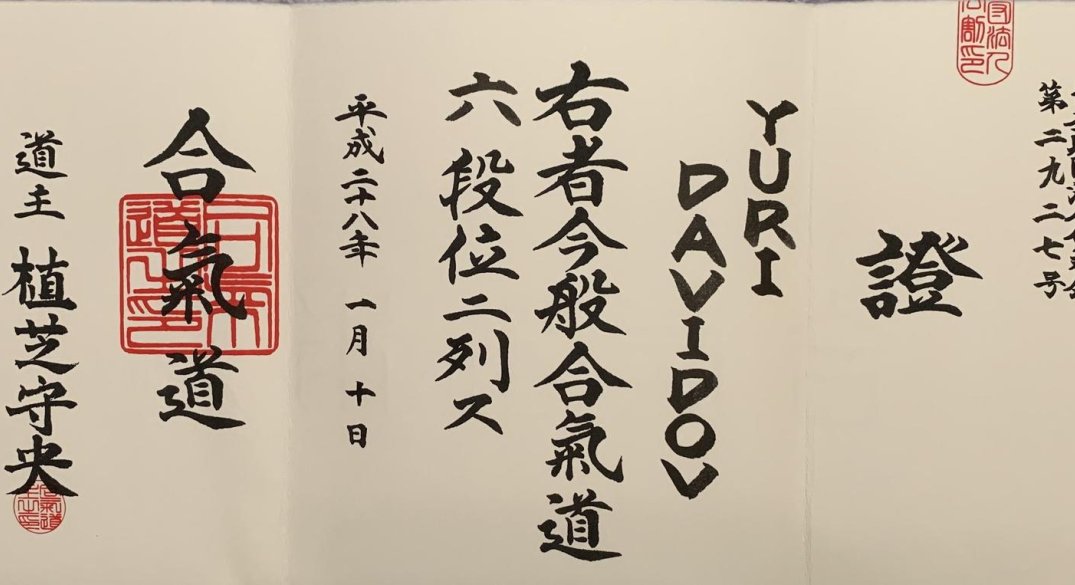 第二九二七号
證
YURI
DAVIDOV
右者今般合氣道
六段位ニ列ス
平成二十八年 一月 十日
合氣道
道主 植芝守央